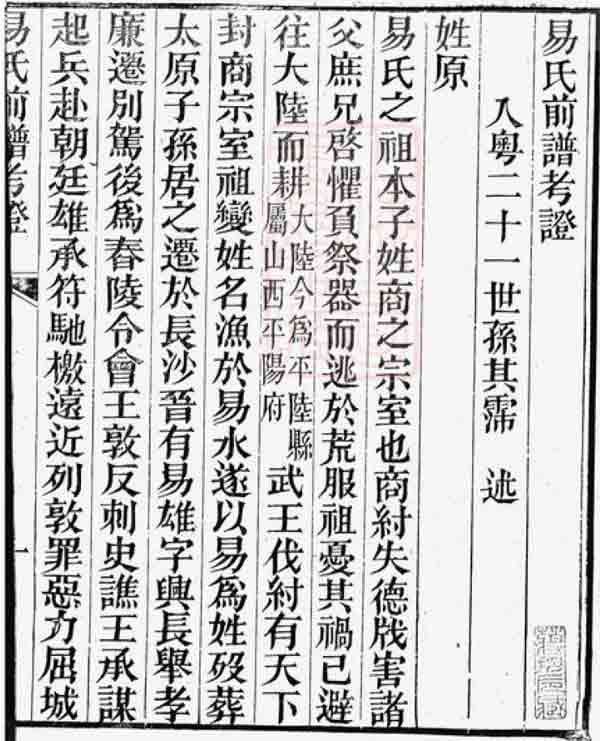 易氏前譜考證
入粵二十一世孫其霈 述
姓原
易氏之祖本子姓商之宗室也商紂失德戕害諸
父庶兄啓懼負祭器而逃於荒服祖憂其禍己避
往大陸而耕大陸今爲平陸縣屬山西平陽府武王伐紂有天下
封商宗室祖變姓名漁於易水遂以易爲姓歿葬
太原子孫居之遷於長沙晉有易雄字興長舉孝
廉遷別駕後爲舂陵令會王敦反刺史譙王承謀
起兵赴朝廷雄承符馳檄遠近列敦罪惡力屈城
易氏前譜考證 一